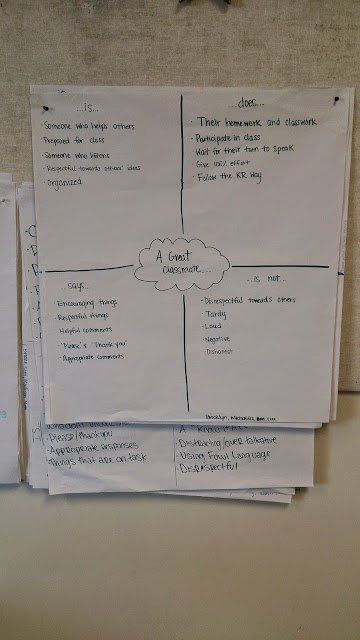 ...is...
· Someone who helps others
· Prepared for class
· Someone who listens
· Respectful towards others' ideas
· Organized
...does...
· Their homework and classwork
· Participate in class
· Wait for their turn to speak
· Give 100% effort
· Follow the KR Way
A Great
Classmate...
...says...
· Encouraging things
· Respectful things
· Helpful comments
· "Please" & "Thank you"
· Appropriate comments
...is not...
· Disrespectful towards others
· Tardy
· Loud
· Negative
· Dishonest
Brooklyn, Michaella,
· Please/thank you
· Appropriate responses
· Things that are on task
A "Know it All"
· Distracting/over talkative
· Using Fowl Language
· Disrespectful